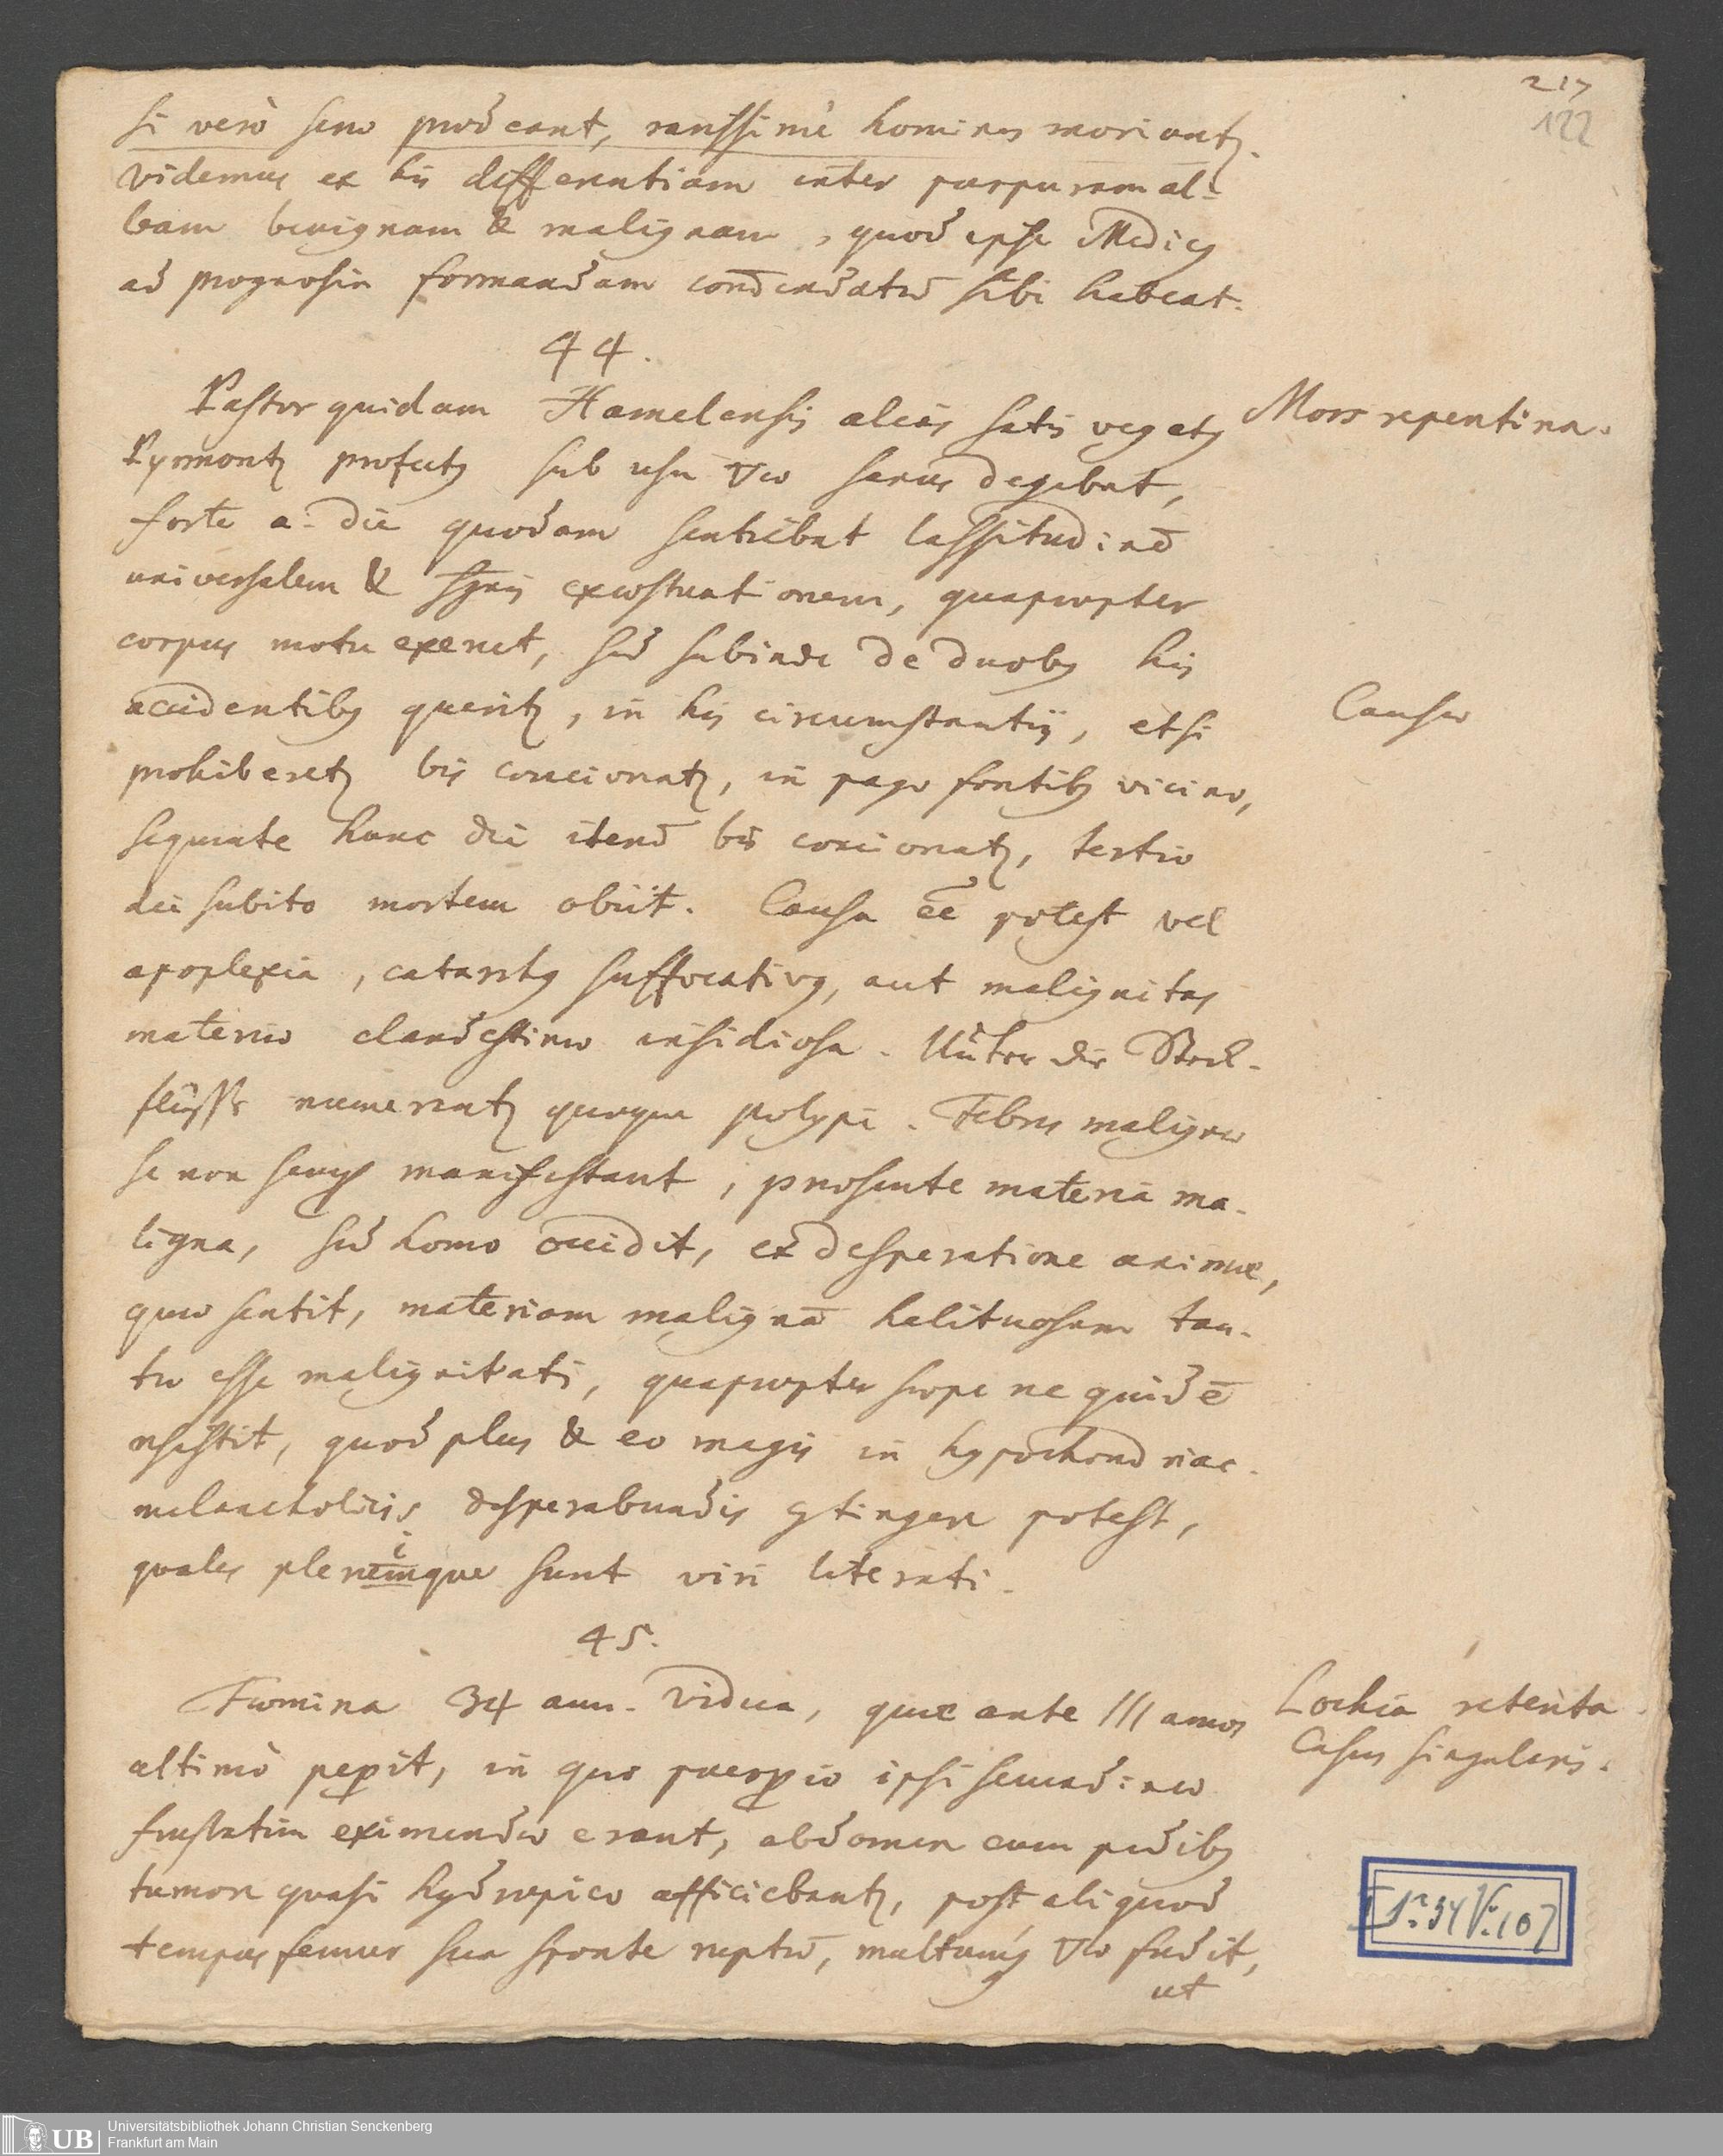 217
122
si verò sero prodeant, rarissimè homines moriuntꝫ.
videmus ex his differentiam inter purpuram al-
bam benignam & malignam, quod ipse Medicꝰ
ad prognosin formandam sibi habeat.
44.
Pastor quidam Hamelensis alias satis vegetꝰ
Mors repentina.
Pyrmontꝫ profectꝰ sub usu sanus degebat,
forte a. die quodam sentiebat lassitudinē
universalem & exæstuationem, quapropter
corpus motu exercet, sed subinde de duobꝰ his
accidentibꝰ queritꝫ, in his circumstantiis, etsi
Causæ
prohiberetꝫ bis concionatꝫ, in pago fontibꝰ vicino,
sequente hunc die iterū bis concionatꝫ, tertio
die subito mortem obiit. Causa eē potest vel
apoplexia, catarrhꝰ suffocativꝰ, aut malignitas
materiæ clandestinæ insidiosa. Unter die Steck-
flüsse numerantꝫ quoque polypi. Febres malignæ
se non semp manifestant, præsente materia ma-
ligna, sed homo occidit, ex desperatione animæ,
quæ sentit, materiam malignā halituosam tan-
tæ esse malignitatis, quapropter sæpe ne quidē
resistit, quod plus & eo magis in hypochondriac.
melancholicis desperabundis ꝯtingere potest,
quales plerumque sunt viri literati.
45.
Fœmina 34 ann. vidua, quæ ante III annos
Lochia retenta.
ultimò peperit, in quo puerperio ipsi secundinæ
Casus singularis.
frustatim eximendæ erant, abdomen cum pedibꝰ
tumore quasi hydropico afficiebantꝫ, post aliquod
tempus femur sua sponte ruptū, multumqꝫ fudit,
ut
1:34 V:107
UB Universitätsbibliothek Johann Christian Senckenberg
Frankfurt am Main